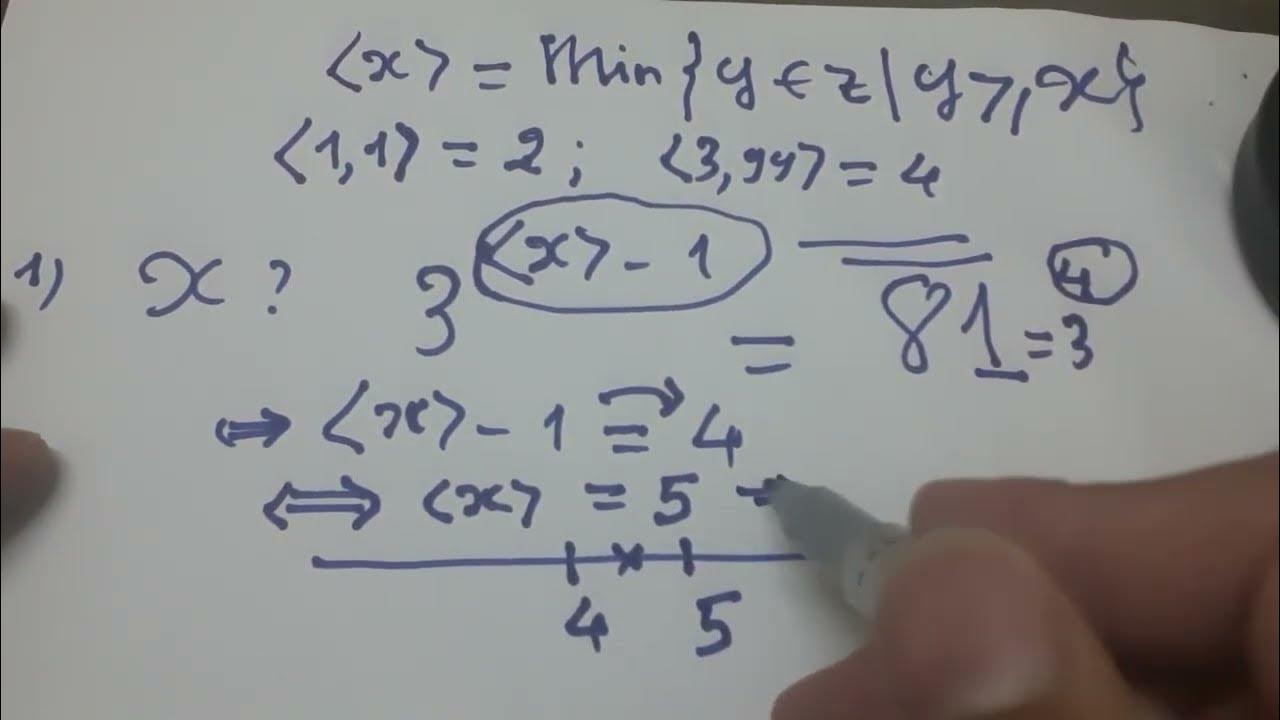 <x> = Min {y ∈ z | y ≥ x}
<1,1> = 2 ; <3,94> = 4
1) x ? 3^(<x> - 1) = 81 = 3^4
⇔ <x> - 1 = 4
⇔ <x> = 5
4 5